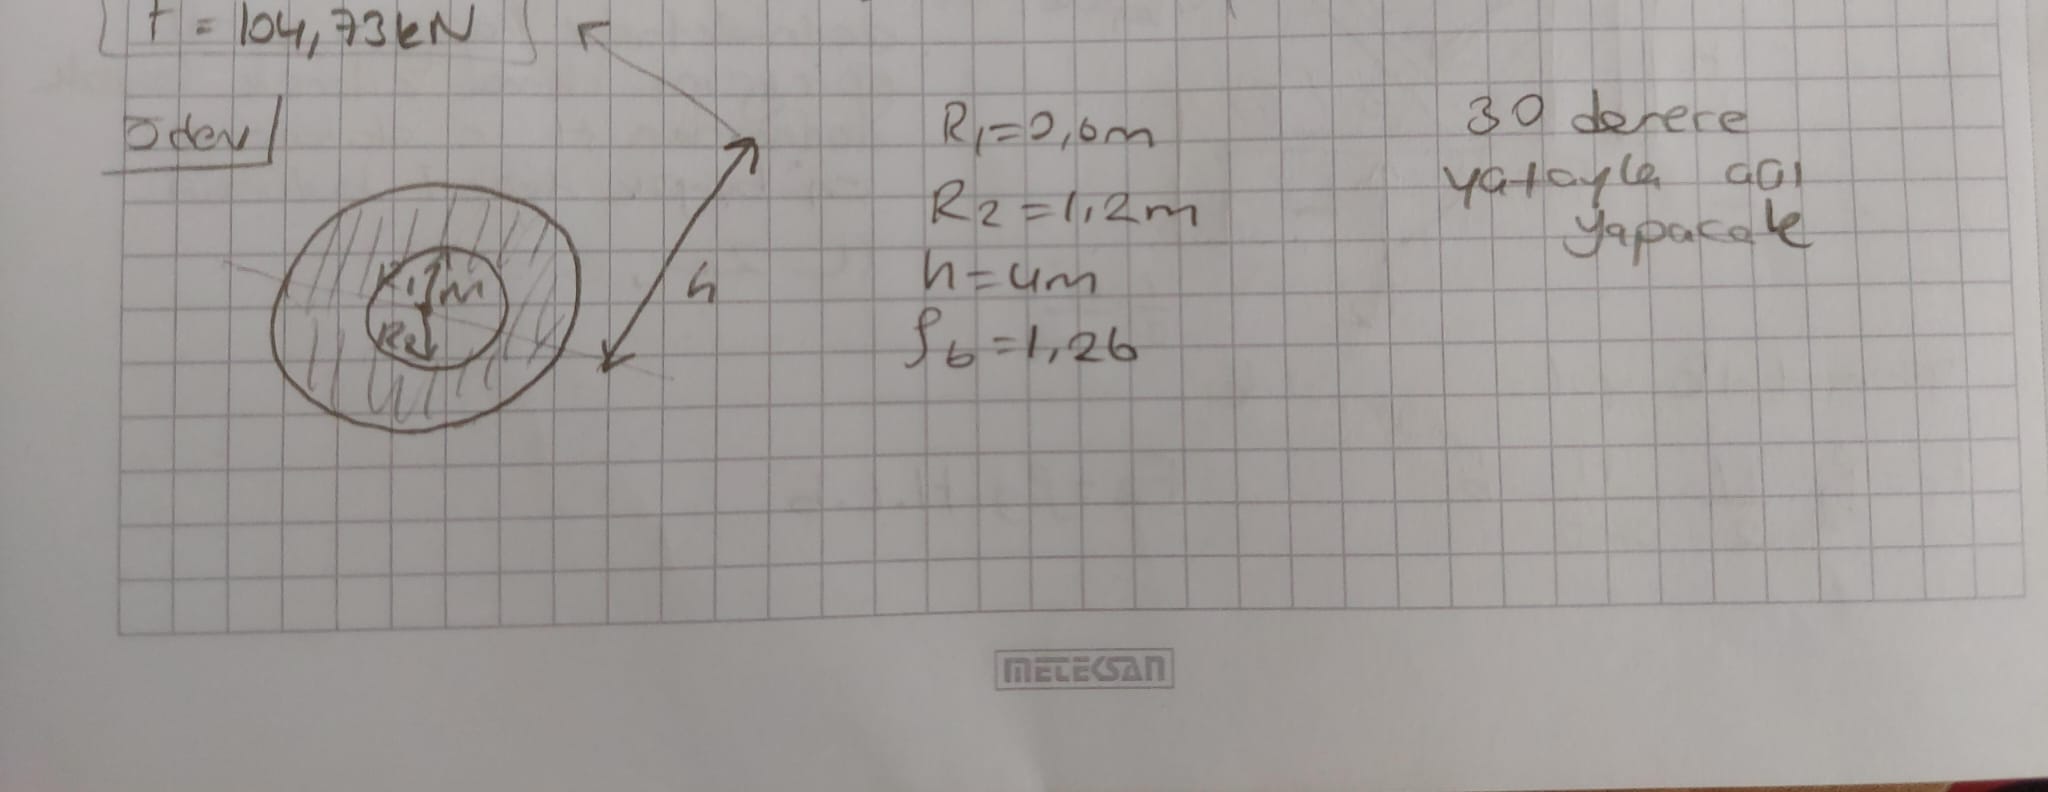 F = 104,73kN
Ödev
R1
m
R2
h
R1=0,6m
R2=1,2m
h=4m
ρb=1,26
30 derece
yatayla açı
yapacak
METEKSAN